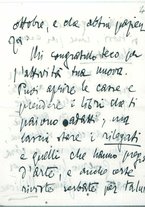 4
ottobre, e da altri pazien
za
Mi congratulo teco per
l'attività tua nuova.
Puoi aprire le casse e
prendere i libri che ti
paiono adatti, ma
lascia stare i rilegati
e quelli che hanno pregi
d'arte, e anche certe
riviste serbate per